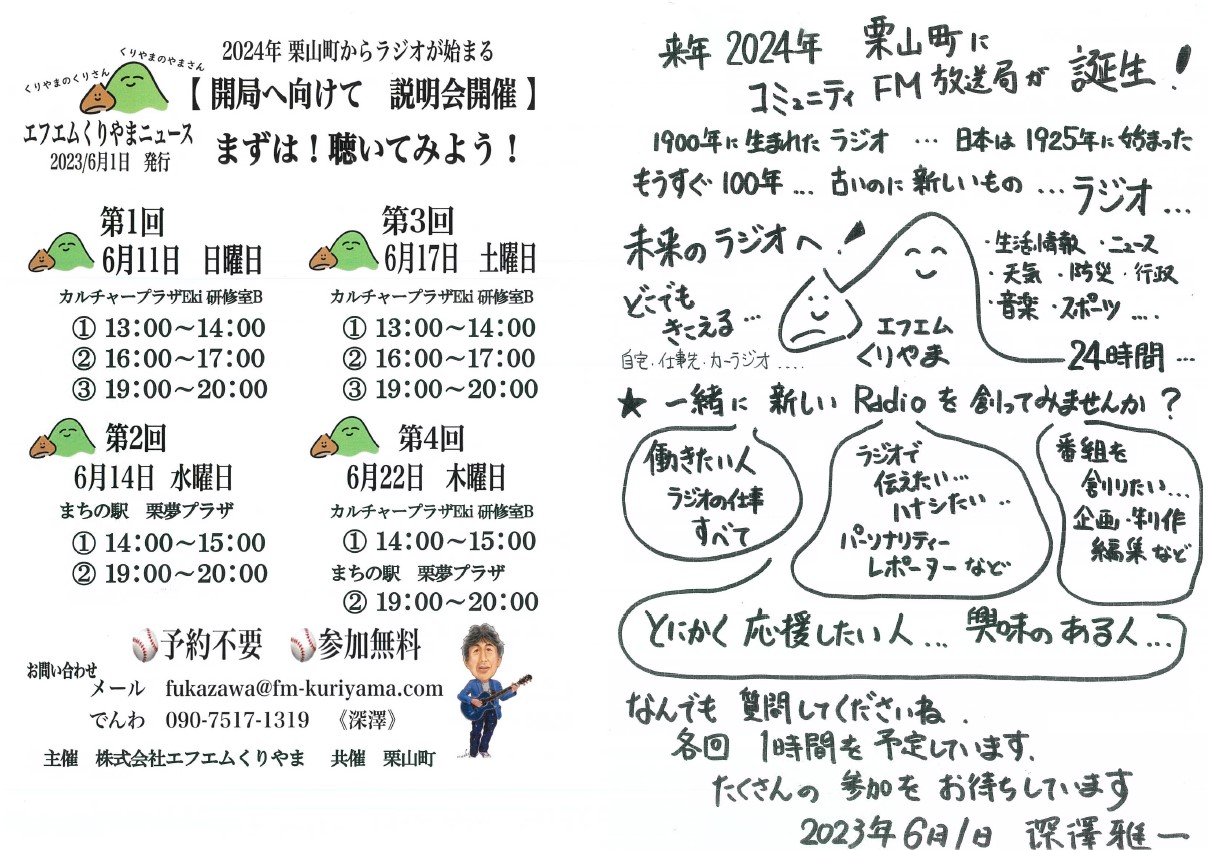 くりやまのくりさん
くりやまのやまさん
エフエムくりやまニュース
2023/6月1日 発行
2024年 栗山町からラジオが始まる
【 開局へ向けて 説明会開催 】
まずは！聴いてみよう！
第1回
6月11日 日曜日
カルチャープラザEki 研修室B
① 13:00～14:00
② 16:00～17:00
③ 19:00～20:00
第2回
6月14日 水曜日
まちの駅 栗夢プラザ
① 14:00～15:00
② 19:00～20:00
第3回
6月17日 土曜日
カルチャープラザEki 研修室B
① 13:00～14:00
② 16:00～17:00
③ 19:00～20:00
第4回
6月22日 木曜日
カルチャープラザEki 研修室B
① 14:00～15:00
まちの駅 栗夢プラザ
② 19:00～20:00
予約不要 参加無料
お問い合わせ
メール fukazawa@fm-kuriyama.com
でんわ 090-7517-1319 《深澤》
主催 株式会社エフエムくりやま 共催 栗山町
来年 2024年 栗山町に
コミュニティ FM 放送局が 誕生！
1900年に生まれた ラジオ … 日本は 1925年に始まった
もうすぐ 100年 … 古いのに 新しいもの … ラジオ …
未来の ラジオ へ！
どこでも
きこえる…
自宅・仕事先・カーラジオ ....
エフエム
くりやま
・生活情報 ・ニュース
・天気 ・防災 ・行政
・音楽 ・スポーツ ....
24時間 …
★ 一緒に 新しい Radio を 創ってみませんか ？
働きたい人
ラジオの仕事
すべて
ラジオで
伝えたい…
ハナシたい ..
パーソナリティー
レポーター など
番組を
創りたい…
企画・制作
編集 など
とにかく 応援したい人 … 興味の ある人 …
なんでも 質問してくださいね .
各回 1時間を 予定しています.
たくさんの 参加を お待ちしています
2023年6月1日 深澤雅一